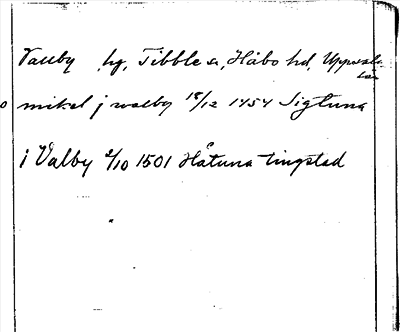 Vallby by, Tibble sn, Håbo hd, Uppsala
län
o mikel j walby 18/12 1454 Sigtuna
i Valby 2/10 1501 Håtuna tingstad